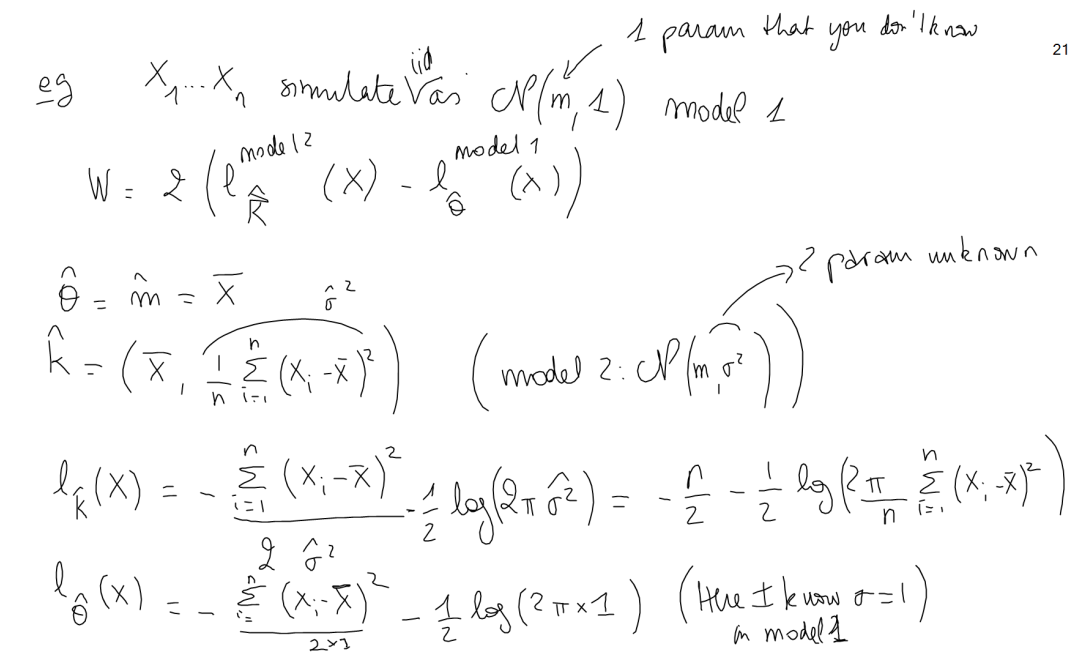 1 param that you don't know
21
eg X₁...Xₙ simulate iid as 𝒩(m, 1) model 1
W = 2 (l_{k̂}^{model 2} (X) - l_{θ̂}^{model 1} (X))
2 param unknown
θ̂ = m̂ = X̄
σ̂²
k̂ = (X̄, 1/n Σ_{i=1}^{n} (Xᵢ - X̄)²) (model 2: 𝒩(m, σ²))
l_{k̂}(X) = - Σ_{i=1}^{n} (Xᵢ - X̄)² / 2 σ̂² - 1/2 log(2π σ̂²) = - n/2 - 1/2 log(2π/n Σ_{i=1}^{n} (Xᵢ - X̄)²)
l_{θ̂}(X) = - Σ_{i=}^{n} (Xᵢ - X̄)² / 2×1 - 1/2 log(2π×1) (Here I know σ=1
in model 1)